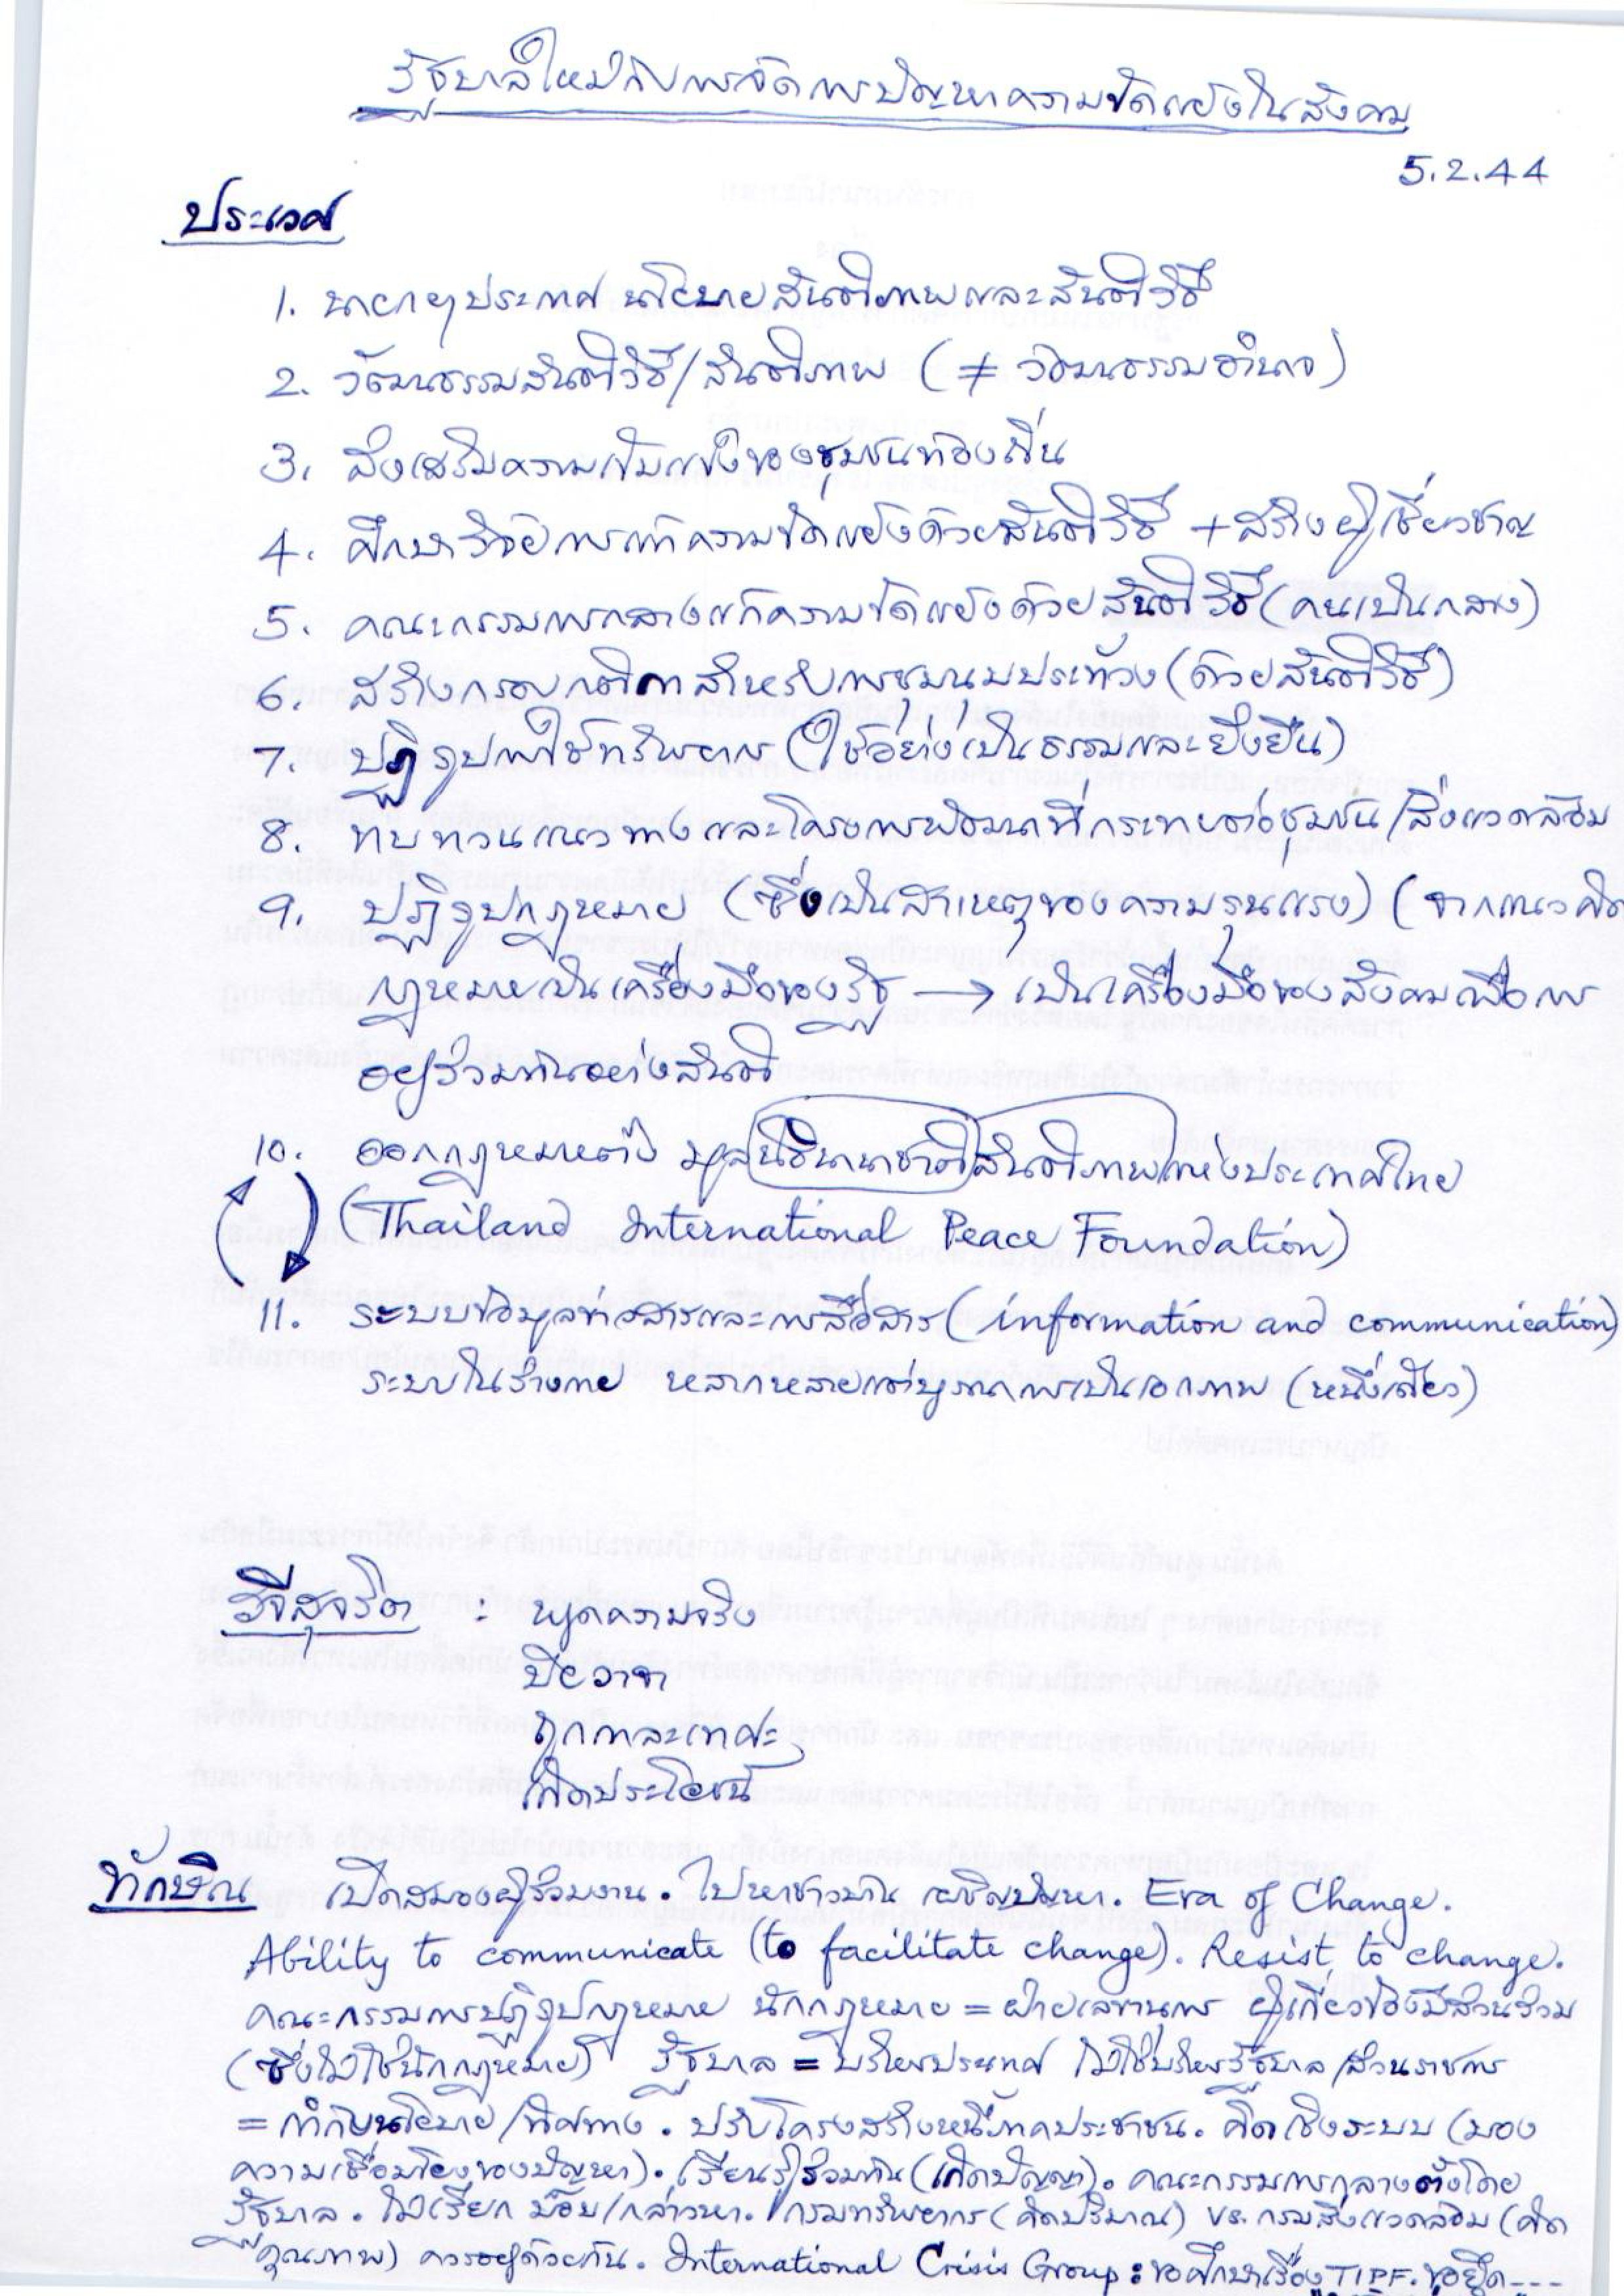 รัฐบาลใหม่กับการจัดการปัญหาความขัดแย้งในสังคม
5.2.44
ประเวศ
1. นายกฯประกาศ นโยบายสันติภาพและสันติวิธี
2. วัฒนธรรมสันติวิธี/สันติภาพ (≠ วัฒนธรรมอำนาจ)
3. ส่งเสริมความเข้มแข็งของชุมชนท้องถิ่น
4. ศึกษาวิจัยการแก้ความขัดแย้งด้วยสันติวิธี + สร้างผู้เชี่ยวชาญ
5. คณะกรรมการกลางแก้ความขัดแย้งด้วยสันติวิธี (คนเป็นกลาง)
6. สร้างกรอบกติกาสำหรับการชุมนุมประท้วง (ด้วยสันติวิธี)
7. ปฏิรูปการใช้ทรัพยากร (ใช้อย่างเป็นธรรมและยั่งยืน)
8. ทบทวนแนวทางและโครงการพัฒนาที่กระทบต่อชุมชน/สิ่งแวดล้อม
9. ปฏิรูปกฎหมาย (ซึ่งเป็นสาเหตุของความรุนแรง) (จากแนวคิด
กฎหมายเป็นเครื่องมือของรัฐ → เป็นเครื่องมือของสังคมเพื่อการ
อยู่ร่วมกันอย่างสันติ
10. ออกกฎหมายตั้ง มูลนิธินานาชาติสันติภาพแห่งประเทศไทย
(Thailand International Peace Foundation)
11. ระบบข้อมูลข่าวสารและการสื่อสาร (information and communication)
ระบบในร่างกาย หลากหลายแต่บูรณาการเป็นเอกภาพ (หนึ่งเดียว)
วจีสุจริต : พูดความจริง
ปิยวาจา
ถูกกาละเทศะ
เกิดประโยชน์
ทักษิณ เปิดสมองผู้ร่วมงาน. ไปหาชาวบ้าน เผชิญปัญหา. Era of Change.
Ability to communicate (to facilitate change). Resist to change.
คณะกรรมการปฏิรูปกฎหมาย นักกฎหมาย = ฝ่ายเลขานุการ ผู้เกี่ยวข้องมีส่วนร่วม
(ซึ่งไม่ใช่นักกฎหมาย) รัฐบาล = บริหารประเทศ ไม่ใช่บริหารรัฐบาล/ส่วนราชการ
= กำกับนโยบาย/ทิศทาง. ปรับโครงสร้างหนี้ภาคประชาชน. คิดเชิงระบบ (มอง
ความเชื่อมโยงของปัญหา). เรียนรู้ร่วมกัน (เกิดปัญญา). คณะกรรมการกลางตั้งโดย
รัฐบาล. ไม่เรียก ม็อบ/กล่าวหา. กรมทรัพยากร (คิดปริมาณ) vs. กรมสิ่งแวดล้อม (คิด
คุณภาพ) ควรอยู่ด้วยกัน. International Crisis Group : ขอศึกษาเรื่อง TIPF.